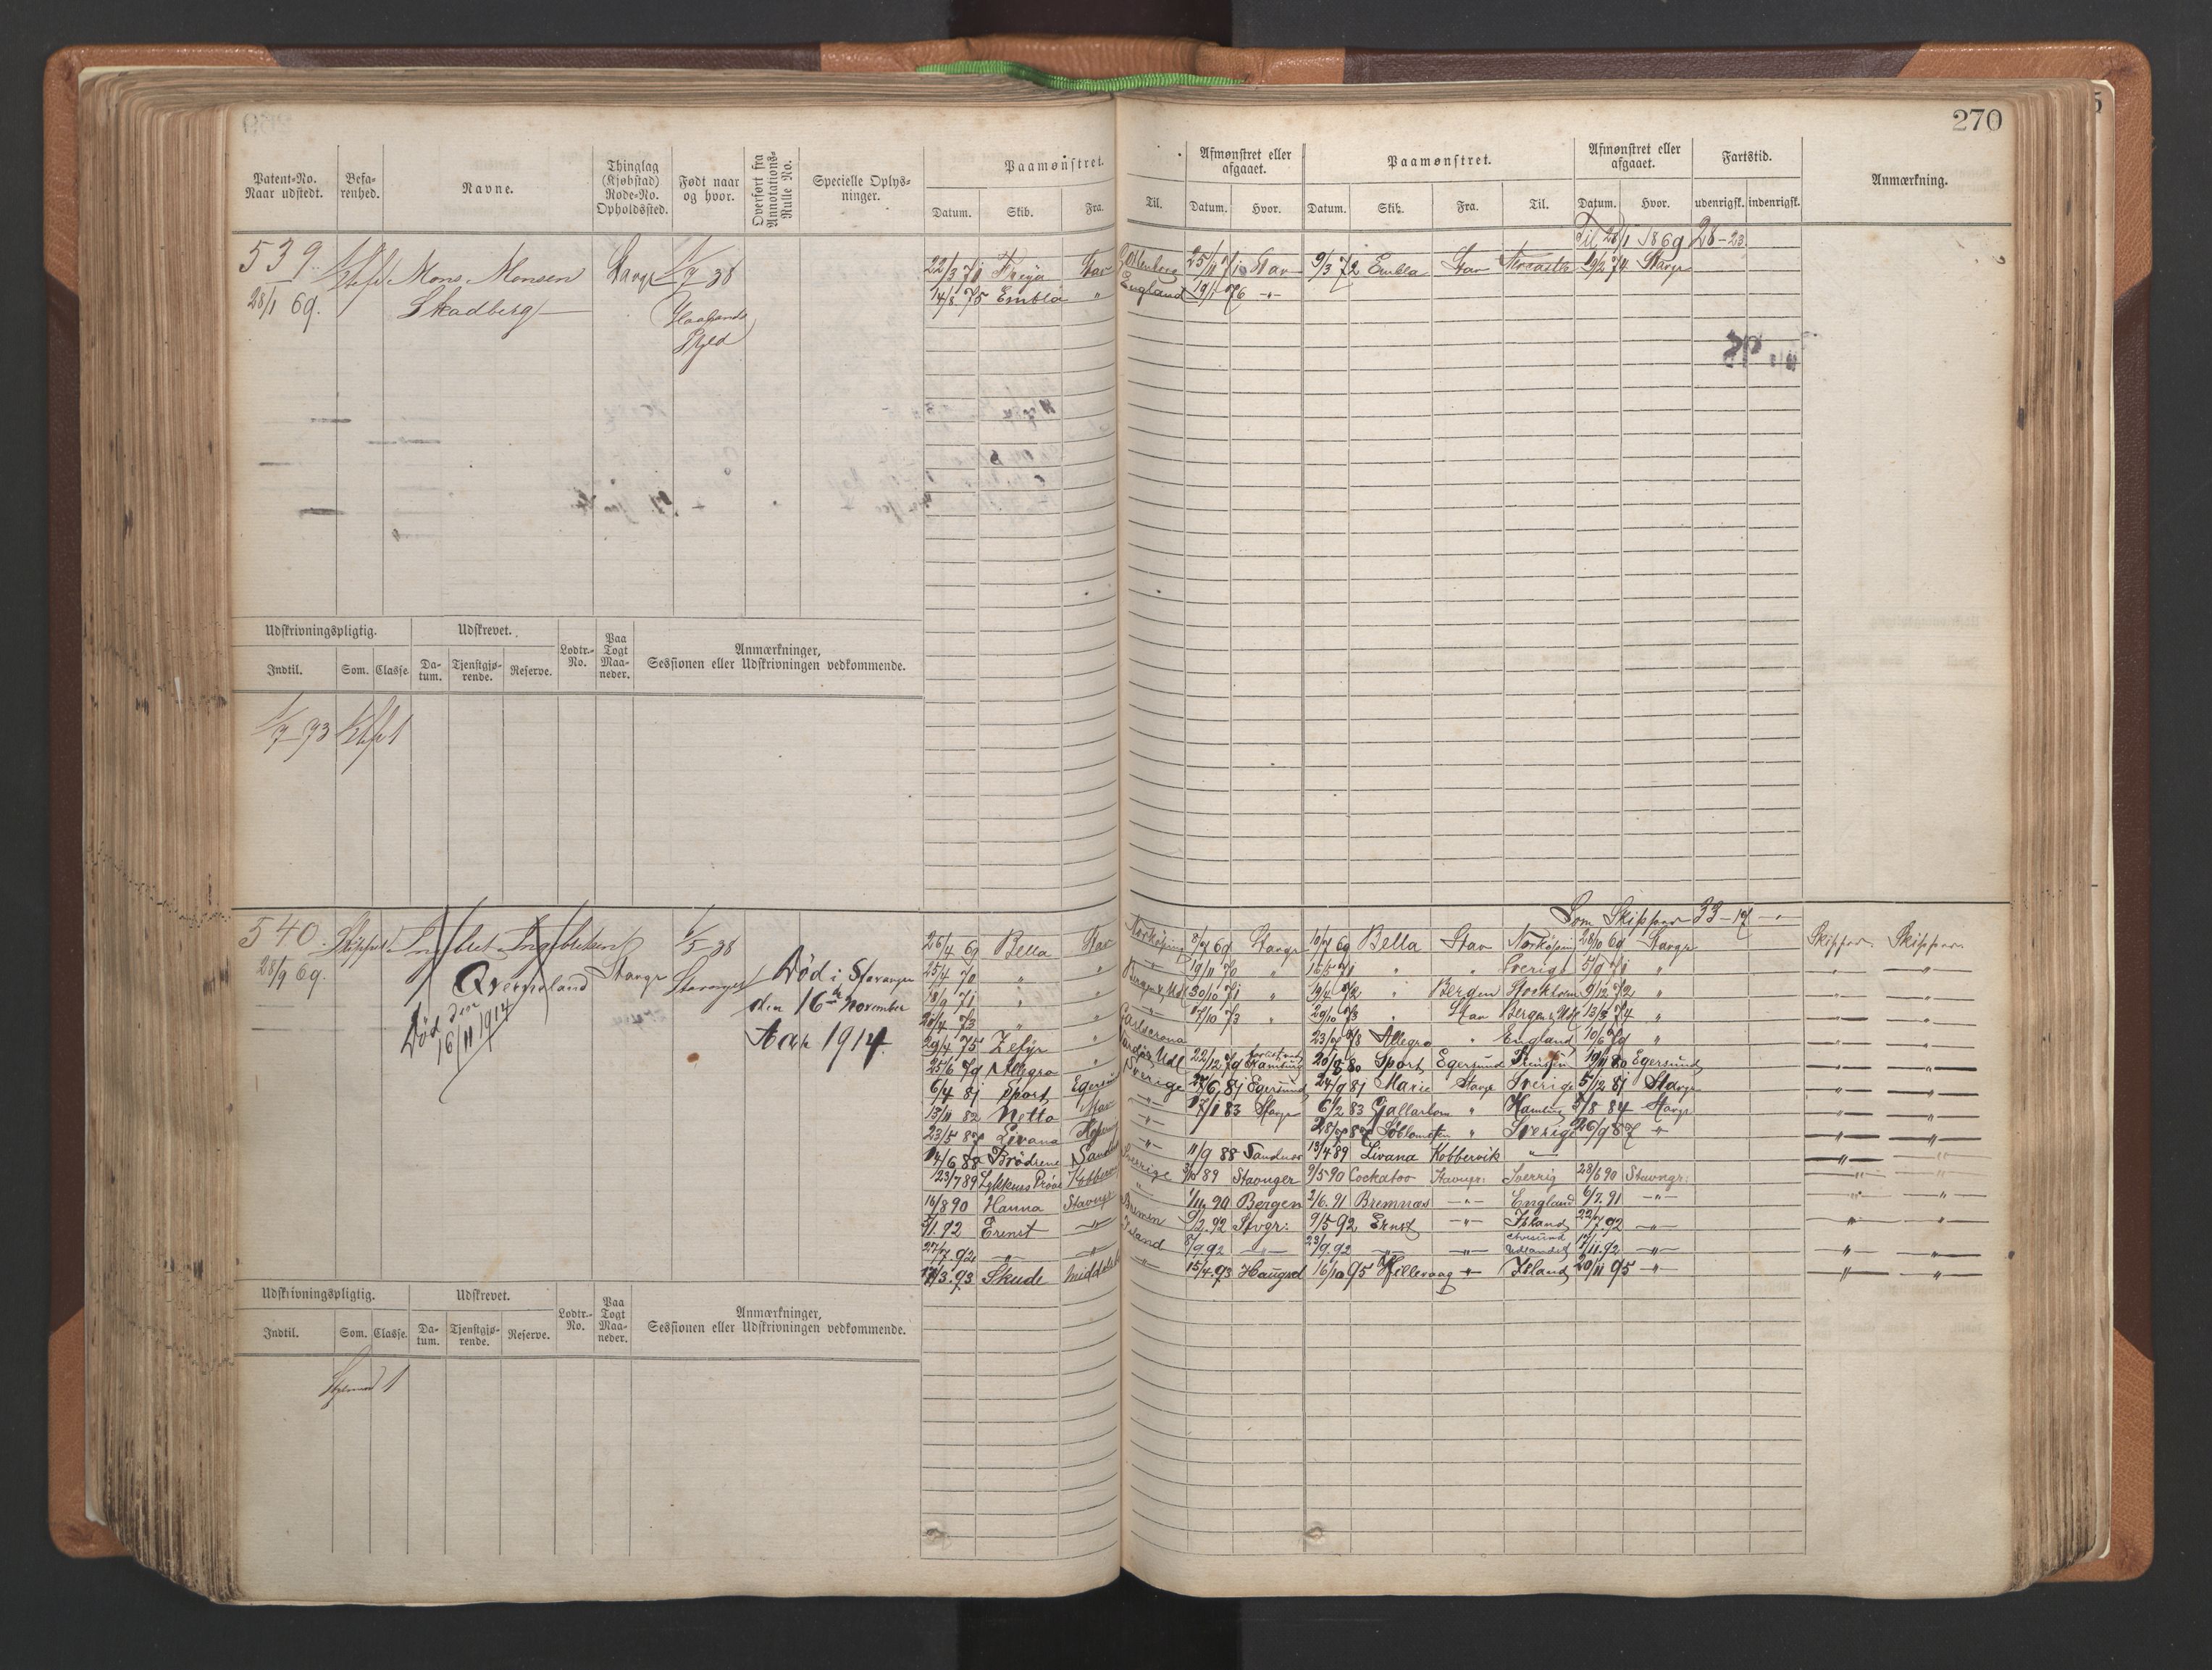 270
Patent-No. Naar udstedt.
Befarenhed.
Navne.
Thinglag (Kjøbstad) Rode-No. Opholdssted.
Født naar og hvor.
Overført fra Annotations-Rulle No.
Specielle Oplysninger.
Paamønstret.
Datum. Skib. Fra. Til.
Afmønstret eller afgaaet.
Datum. Hvor.
Paamønstret.
Datum. Skib. Fra. Til.
Afmønstret eller afgaaet.
Datum. Hvor.
Fartstid.
udenrigsk. indenrigsk.
Anmærkning.
Til 28/1 1869 28-23
539. Mons Monsen Stavgr 1/7 38
28/1 69. Skadberg
22/3 71 Freya Stav Gottenborg 25/11 71 Stav 9/3 72 Embla Stav Newcastle 19/2 74 Stavgr
14/8 75 Embla " England 19/1 76 -"-
Udskrivningspligtig.
Udskrevet.
Lodtr.-No.
Paa Togt Maaneder.
Anmærkninger, Sessionen eller Udskrivningen vedkommende.
Indtil. Som. Classe. Datum. Tjenstgjørende. Reserve.
1/7 93
Som Skipper 33-17
540. Skipper Ingebret Ingebretsen Stavgr 1/5 38 Stavanger
28/9 69. Qverneland
Død den 16/11 1914
Død i Stavanger
den 16de November
Aar 1914.
26/4 69 Bella Stav Norköping 8/7 69 Stavgr 10/7 69 Bella Stav Norköping 28/10 69 Stavgr Skipper Skipper
25/4 70 " " " 19/11 70 " 16/5 71 " " Sverige 5/9 71 " -"- -"-
18/9 71 " " Bergen & Udl 30/10 71 " 19/4 72 " Bergen Stockholm 9/12 72 " -"- -"-
20/4 73 " " " 17/10 73 " 29/10 73 " Stav Bergen & Udl 13/3 74 " -"- -"-
29/4 75 Zefyr " Carlscrona 23/7 78 Allegro " England 10/6 79 " -"- -"-
25/6 79 Allegro " Udl 22/12 79 20/8 80 Sport Egersund 19/11 80 Egersund -"- -"-
6/4 81 Sport Egersund Sverige 27/6 81 Egersund 24/9 81 Marie Stavgr Sverige 5/12 81 Stavgr -"- -"-
13/11 82 Netto Stav -"- 17/1 83 Stavgr 6/2 83 Gjallarhorn " Hamburg 5/8 84 Stavgr -"- -"-
23/5 87 Livana -"- 28/7 87 Søblomsten " Sverige 26/9 87 " -"- -"-
14/6 88 Brødrene Sandnes -"- 11/9 88 Sandnes 13/4 89 Livana Kobbervik -"- -"- -"-
23/7 89 Lykkens Prøve Kobbervik Sverige 3/10 89 Stavanger 9/5 90 Cockatoo Stavngr: Sverrig 28/6 90 Stavngr: -"- -"-
16/8 90 Hanna Stavngr " 1/11 90 Bergen 2/6. 91 Bremnæs -"- England 6/7. 91 -"- -"- -"-
5/1. 92 Erenst -"- Bremen 9/2. 92 Stvgr: 9/5 92 Ernst -"- Island 22/7. 92 -"- -"- -"-
27/7. 92 -"- -"- Island 8/9 92 -"- 23/9. 92 -"- -"- Udlandet 19/11. 92 -"- -"- -"-
18/3. 93 Skude -"- 15/4. 93 Haugsd 16/10 95 Hillevaag -"- Island 20/11 95 -"- -"- -"-
Udskrivningspligtig.
Udskrevet.
Lodtr.-No.
Paa Togt Maaneder.
Anmærkninger, Sessionen eller Udskrivningen vedkommende.
Indtil. Som. Classe. Datum. Tjenstgjørende. Reserve.
1